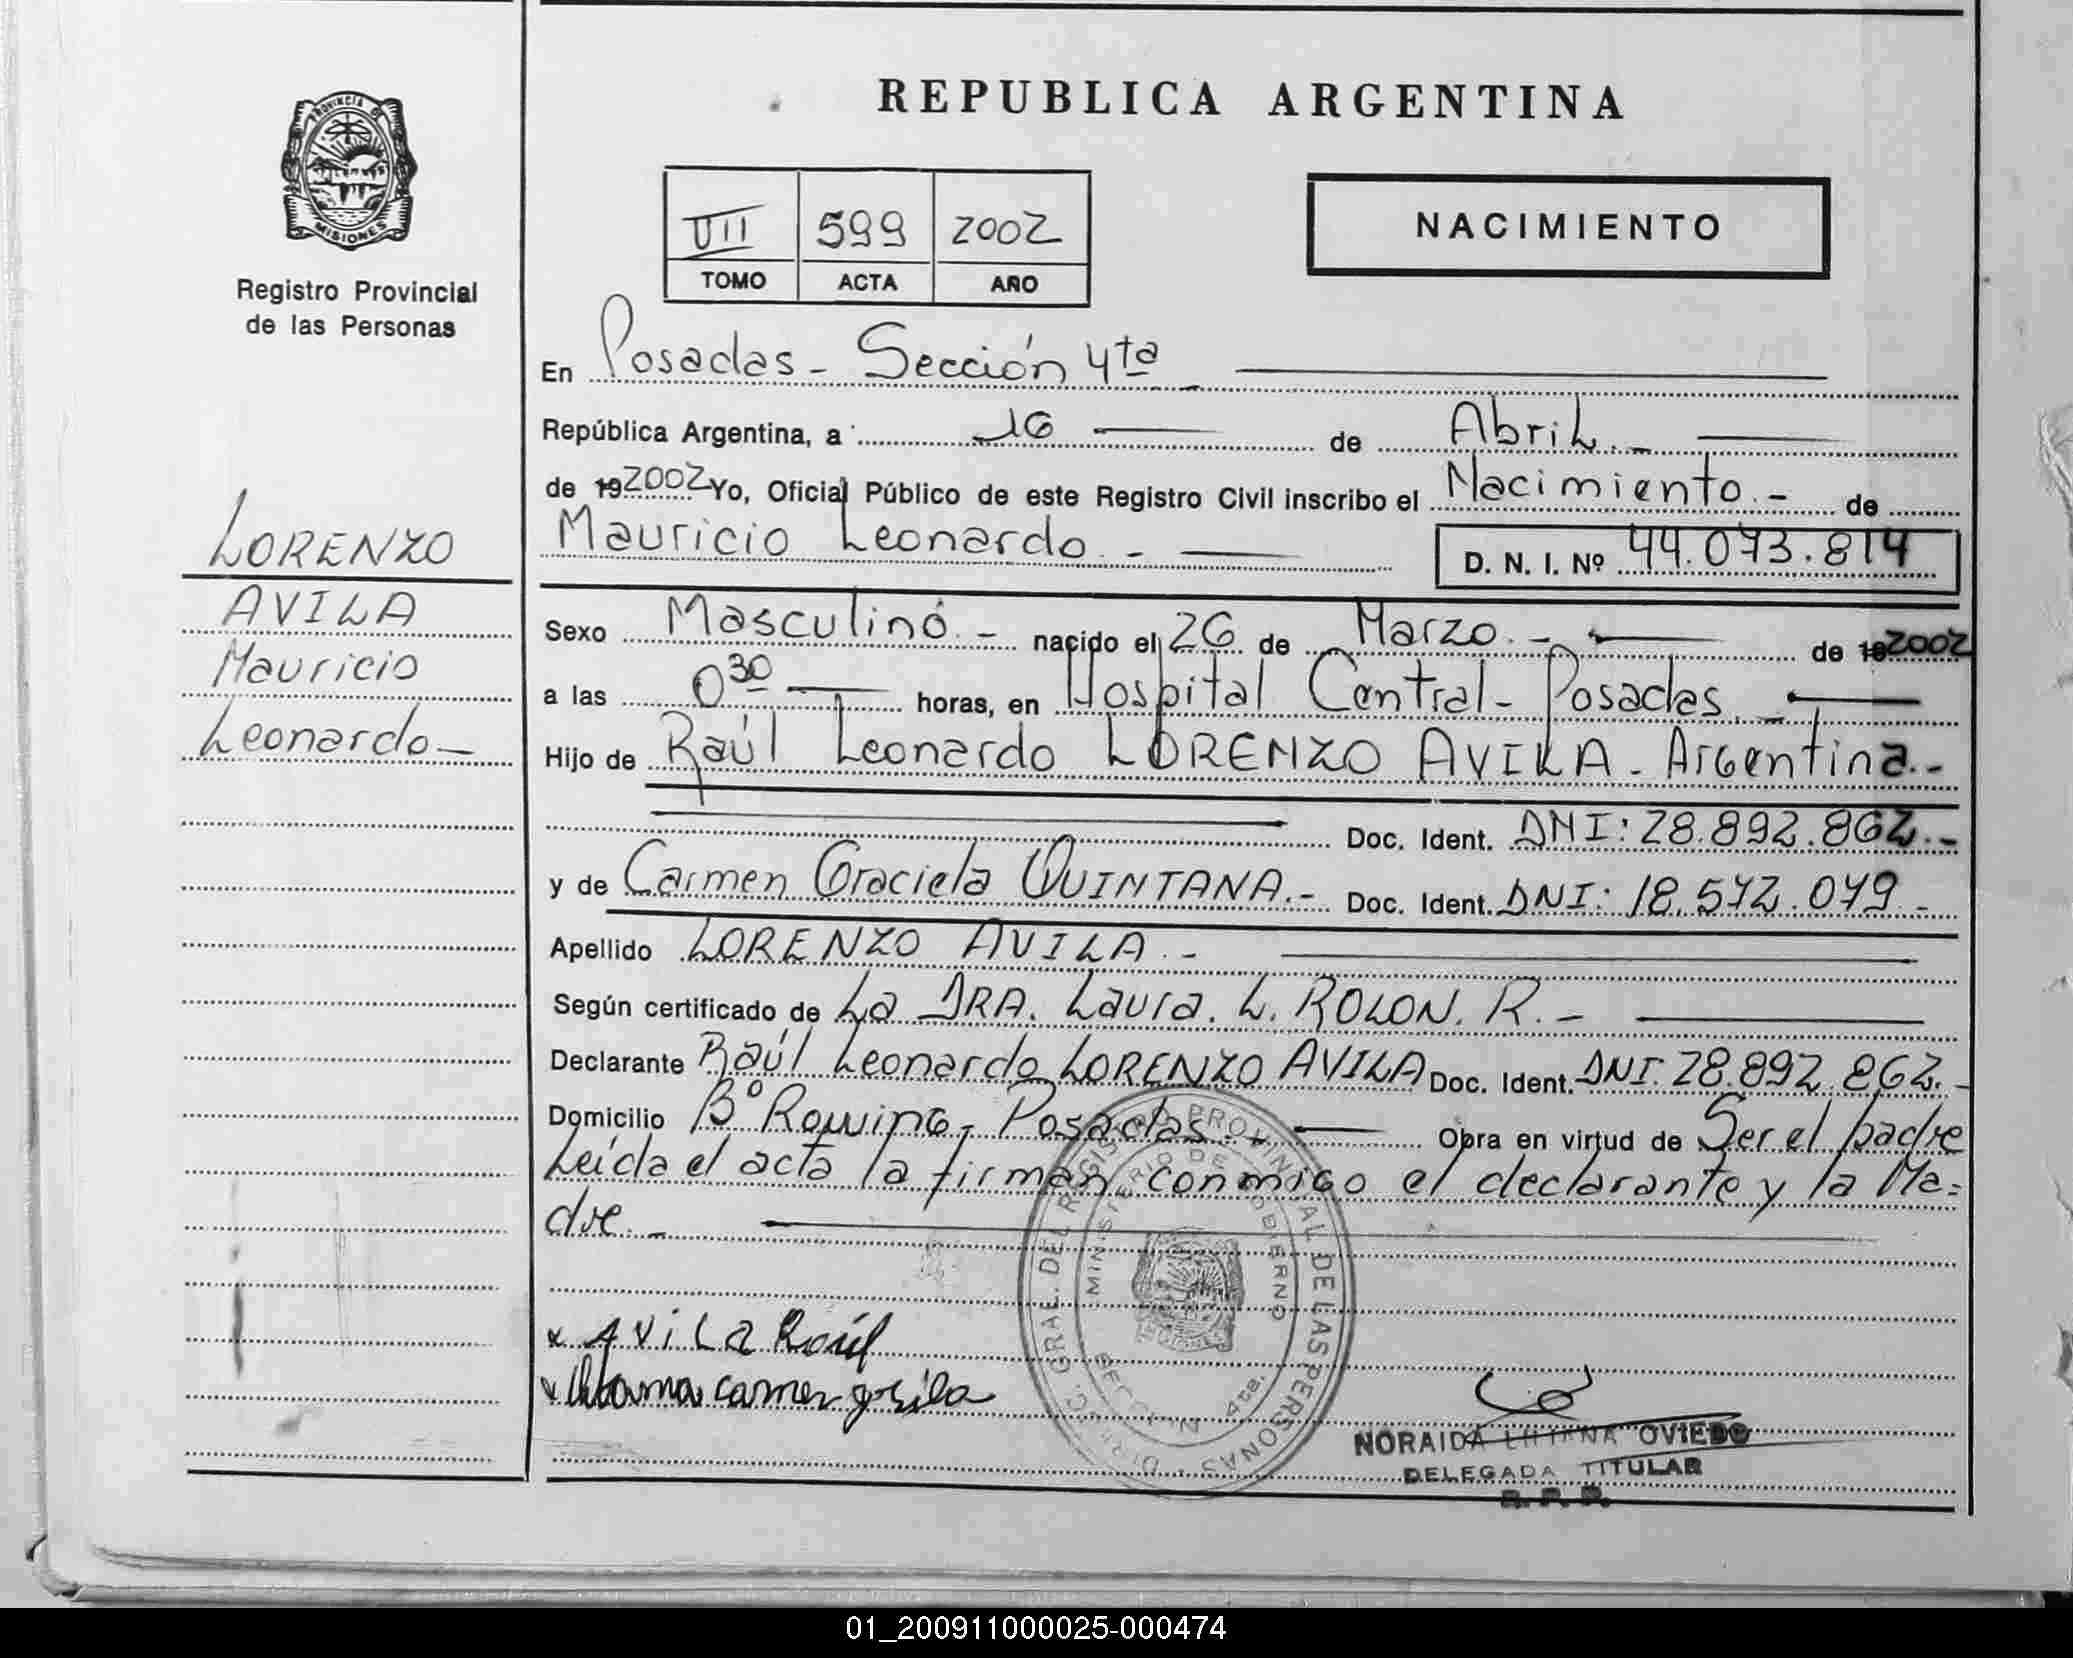 REPUBLICA ARGENTINA
PROVINCIA D
MISIONES
Registro Provincial
de las Personas
VII 599 2002
TOMO ACTA AÑO
NACIMIENTO
En Posadas - Sección 4ta
República Argentina, a 16 de Abril.-
de 192002 Yo, Oficial Público de este Registro Civil inscribo el Nacimiento.- de
Mauricio Leonardo.- D. N. I. Nº 44.073.814
LORENZO
AVILA
Mauricio
Leonardo-
Sexo Masculino.- nacido el 26 de Marzo.- de 192002
a las 0 30 horas, en Hospital Central- Posadas.-
Hijo de Raúl Leonardo LORENZO AVILA - Argentina.-
Doc. Ident. DNI: 28.892.862.-
y de Carmen Graciela QUINTANA.- Doc. Ident. DNI: 18.572.079-
Apellido LORENZO AVILA.-
Según certificado de La DRA. Laura. L. ROLON. R.-
Declarante Raúl Leonardo LORENZO AVILA Doc. Ident. DNI. 28.892.862.-
Domicilio Bº Rowing- Posadas.- Obra en virtud de Ser el padre
Leída el acta la firman conmigo el declarante y la Ma=
dre.-
x AVILA Raúl
x camen
DIREC. GRAL. DEL REGISTRO PROVINCIAL DE LAS PERSONAS
MINISTERIO DE GOBIERNO
SECCION 4ta.
NORAIDA LILIANA OVIEDO
DELEGADA TITULAR
R. P. P.
01_200911000025-000474